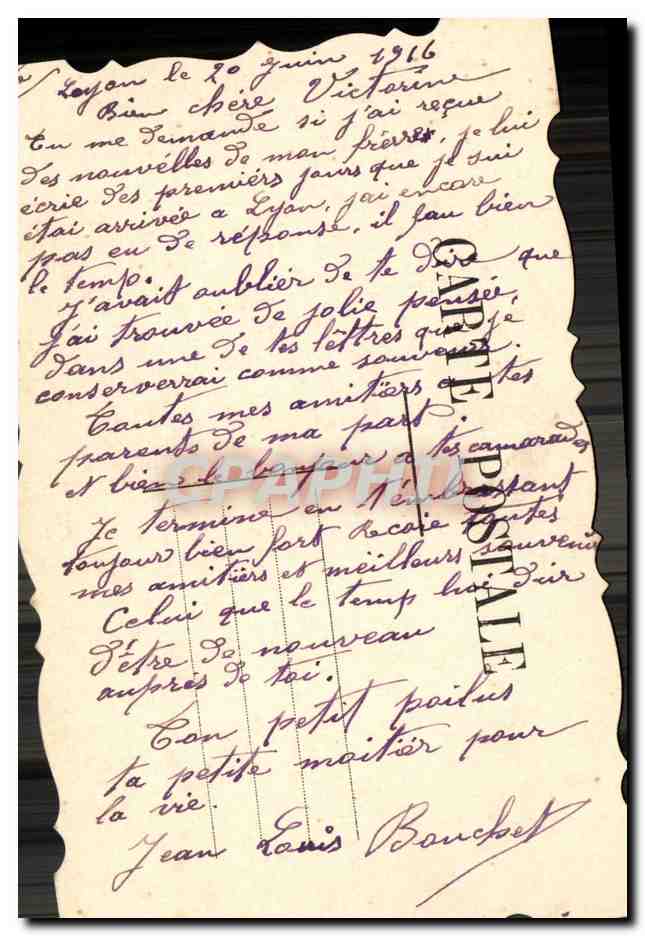 Lyon le 20 Juin 1916
Bien chére Victorine
Tu me demande si j'ai reçue
des nouvélles de mon frérre, je lui
écrie des premiérs jours que je sui
étai arrivée a Lyon, jai encore
pas eu de réponse, il fau bien
le temp.
J'avait oubliér de te dire que
j'ai trouvée de jolie pensée,
dans une de tes lêttres que je
conserverrai comme souvenir.
Toutes mes amitiérs a tes
parents de ma part.
et bien le bonjour a tes camarades
Je termine en t'émbrassant
toujour bien fort Recoie toutes
mes amitiérs et meilleurs souvenir
Celui que le temp lui dur
d'être de nouveau
auprés de toi.
Ton petit poilus
ta petite moitiér pour
la vie.
Jean Louis Bouchet
CARTE POSTALE
CPAPHIL